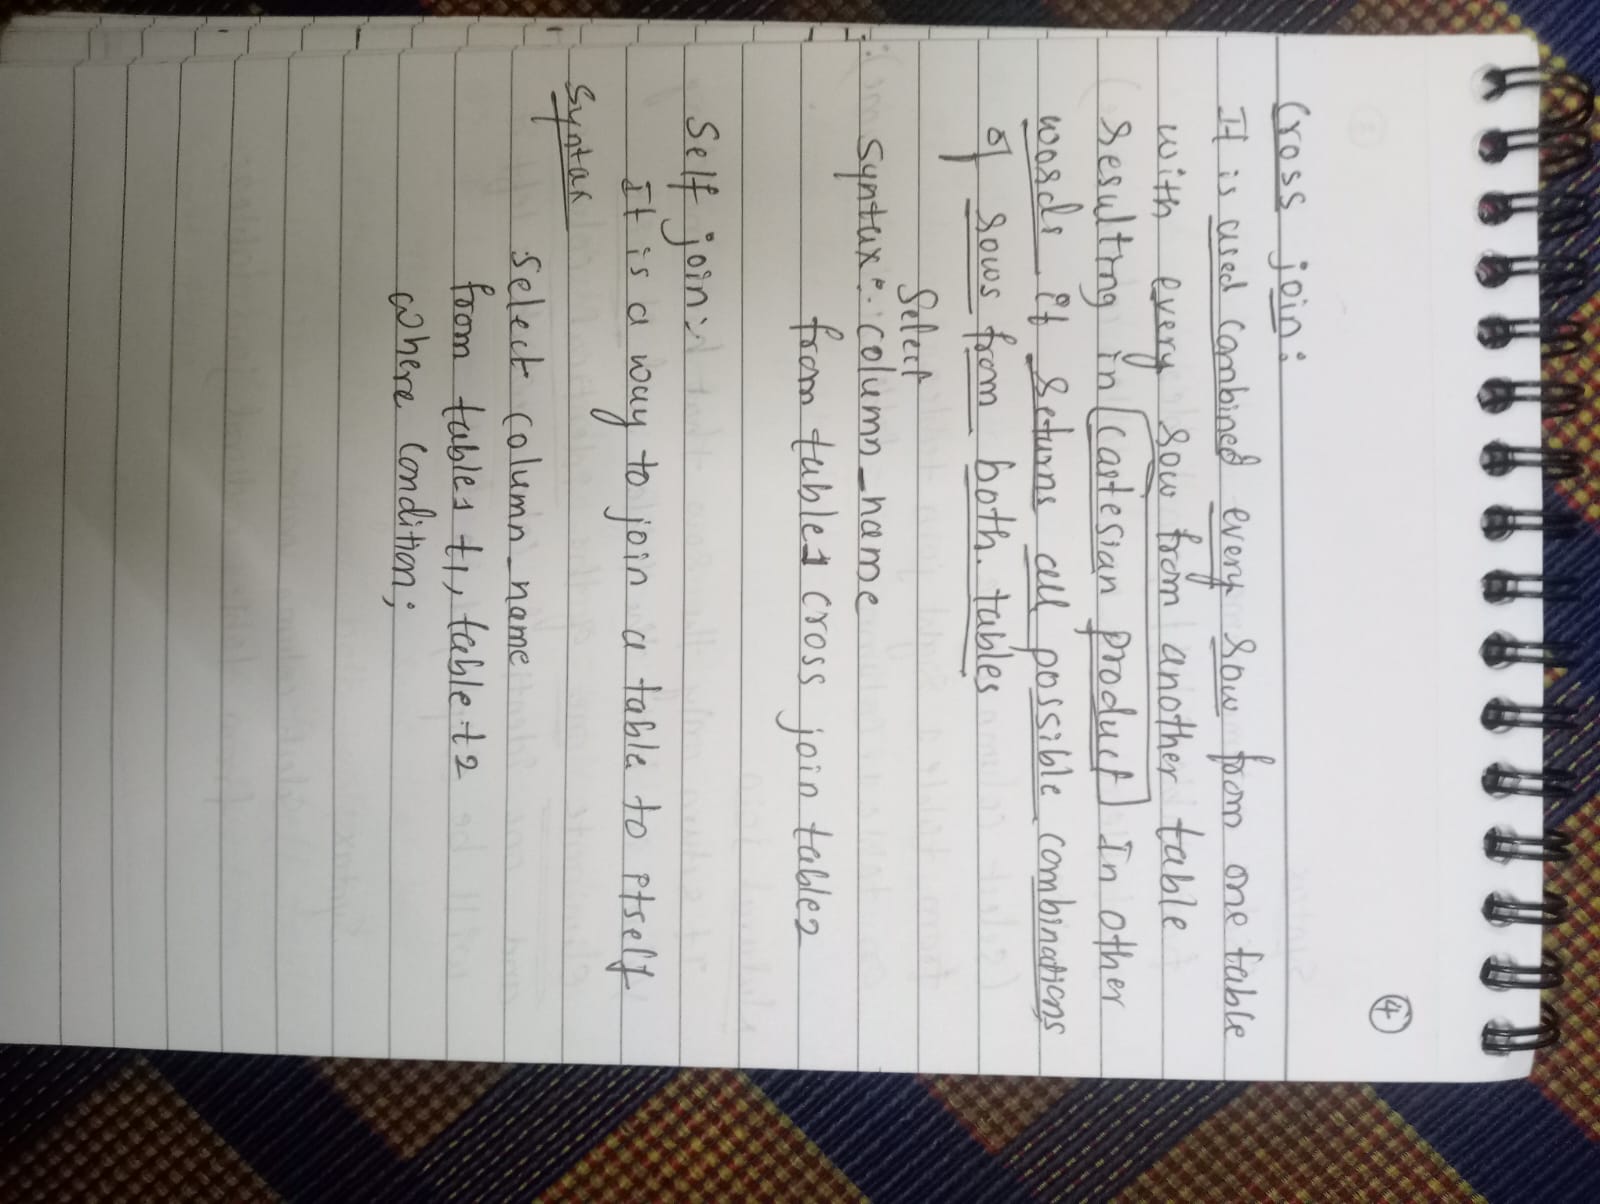 ④
Cross join:
It is used combined every row from one table
with every row from another table
resulting in cartesian product In other
words it returns all possible combinations
of rows from both tables
Select
Syntax: column_name
from table1 cross join table2
Self join:
It is a way to join a table to itself
Syntax
Select column_name
from table1 t1, table t2
where condition;